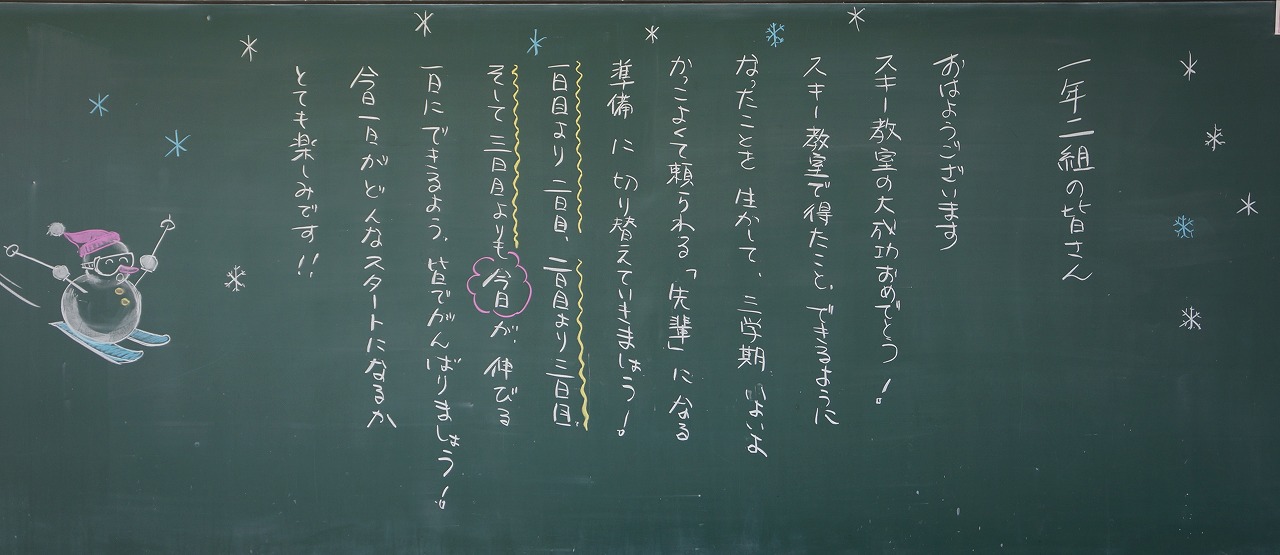 一年二組の皆さん
おはようございます
スキー教室の大成功おめでとう!
スキー教室で得たこと、できるように
なったことを生かして、三学期いよいよ
かっこよくて頼られる「先輩」になる
準備に切り替えていきましょう!
一日目より二日目、二日目より三日目、
そして三日目よりも今日が、伸びる
一日にできるよう、皆でがんばりましょう!
今日一日がどんなスタートになるか
とても楽しみです!!